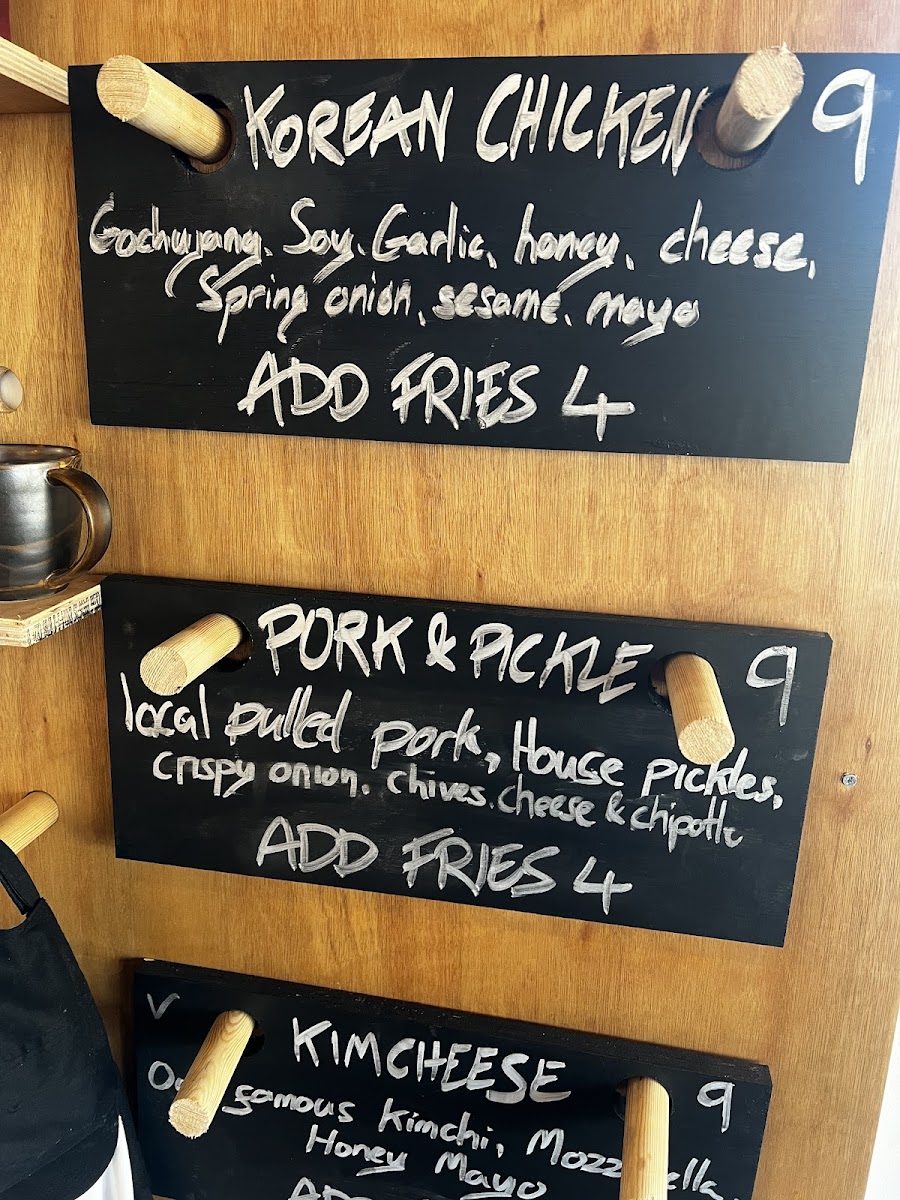 KOREAN CHICKEN 9
Gochujang, Soy, Garlic, honey, cheese,
Spring onion, sesame, mayo
ADD FRIES 4
PORK & PICKLE 9
local pulled pork, House pickles,
crispy onion, chives, cheese & chipotle
ADD FRIES 4
V
KIMCHEESE 9
famous Kimchi, Mozz ella
Honey Mayo
ADD